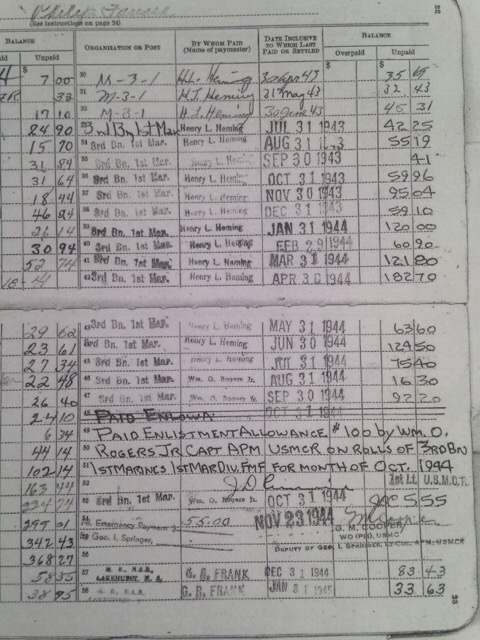 (See instructions on page 24)
BALANCE ORGANIZATION OR POST BY WHOM PAID DATE INCLUSIVE BALANCE
(Name of paymaster) TO WHICH LAST PAID OR SETTLED
Unpaid Overpaid Unpaid
7 00 30 M-3-1 H.L. Heming 30 Apr 43 35
38 31 M-3-1 H.L. Heming 31 May 43 32 43
17 10 M-3-1 H.L. Heming 30 June 43 45 31
24 90 3rd Bn. 1st Mar. Henry L. Heming JUL 31 1943 42 25
15 70 34 3rd Bn. 1st Mar. Henry L. Heming AUG 31 55 19
31 89 3rd Bn. 1st Mar. Henry L. Heming SEP 30 1943 41
31 64 3rd Bn. 1st Mar. Henry L. Heming OCT 31 1943 59 26
18 44 3rd Bn. 1st Mar. Henry L. Heming NOV 30 1943 95 04
46 3rd Bn. 1st Mar. Henry L. Heming DEC 31 1943 59 10
26 14 39 3rd Bn. 1st Mar. Henry L. Heming JAN 31 1944 120 00
30 94 40 3rd Bn. 1st Mar. Henry L. Heming FEB 29 1944 60 90
52 41 3rd Bn. 1st Mar. Henry L. Heming MAR 31 1944 121 80
42 3rd Bn. 1st Mar. Henry L. Heming APR 30 1944 182 70
29 62 43 3rd Bn. 1st Mar. Henry L. Heming MAY 31 1944 63 60
23 61 3rd Bn. 1st Mar. Henry L. Heming JUN 30 1944 129 50
27 34 45 3rd Bn. 1st Mar. Henry L. Heming JUL 31 1944 75 40
22 48 46 3rd Bn. 1st Mar. Wm. O. Rogers Jr. AUG 31 1944 16 30
26 40 47 3rd Bn. 1st Mar. Wm. O. Rogers Jr. SEP 30 1944 92 20
24 10 48 PAID OCT 31 1944
6 34 PAID ENLISTMENT ALLOWANCE $100 by WM. O.
44 14 50 ROGERS JR. CAPT APM USMCR ON ROLLS OF 3RD BN
102 14 51 1ST MARINES 1ST MAR DIV. FMF FOR MONTH OF OCT. 1944
163 52 1st Lt. U.S.M.C.T.
53 3rd Bn. 1st Mar. Wm. O. Rogers Jr. OCT 31 1944 5 55
295 01 Emergency Payment 55.00 NOV 23 1944 G. M. COOPER,
342 43 Geo. I. Springer, WO (PD), USMC
368 27 56 DEPUTY OF
58 35 57 LAKEHURST, N. J. G. B. FRANK DEC 31 1944 83 43
38 95 58 G. B. FRANK JAN 31 33 63